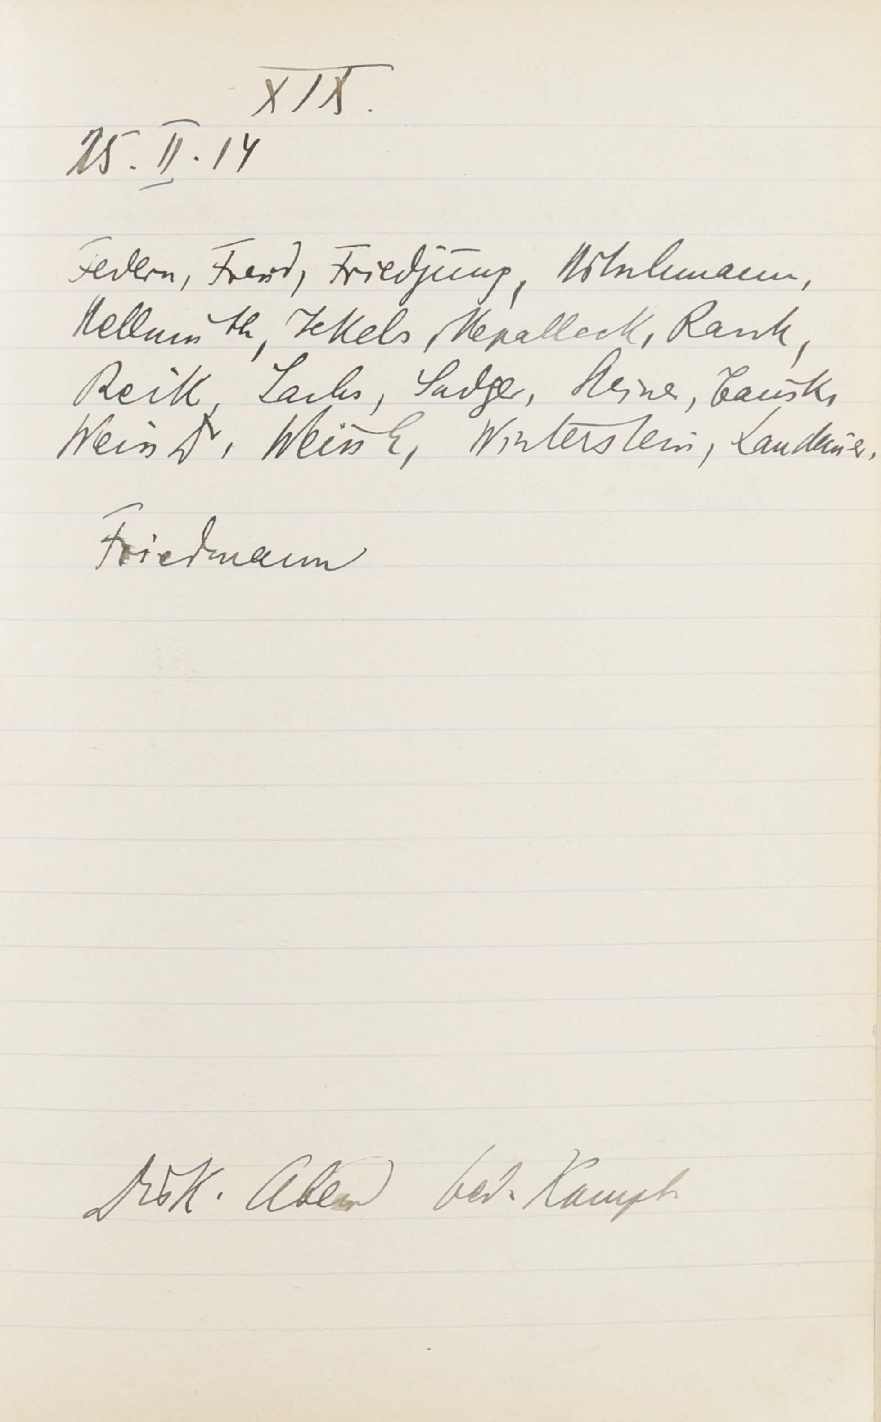 XIX.
25. II. 14
Federn, Freud, Friedjung, Hitschmann,
Hellmuth, Jekels, Nepalleck, Rank,
Reik, Sachs, Sadger, Steiner, Tausk,
Weiss Dr, Weiss E, Winterstein, Landauer.
Friedmann
Disk. Abend